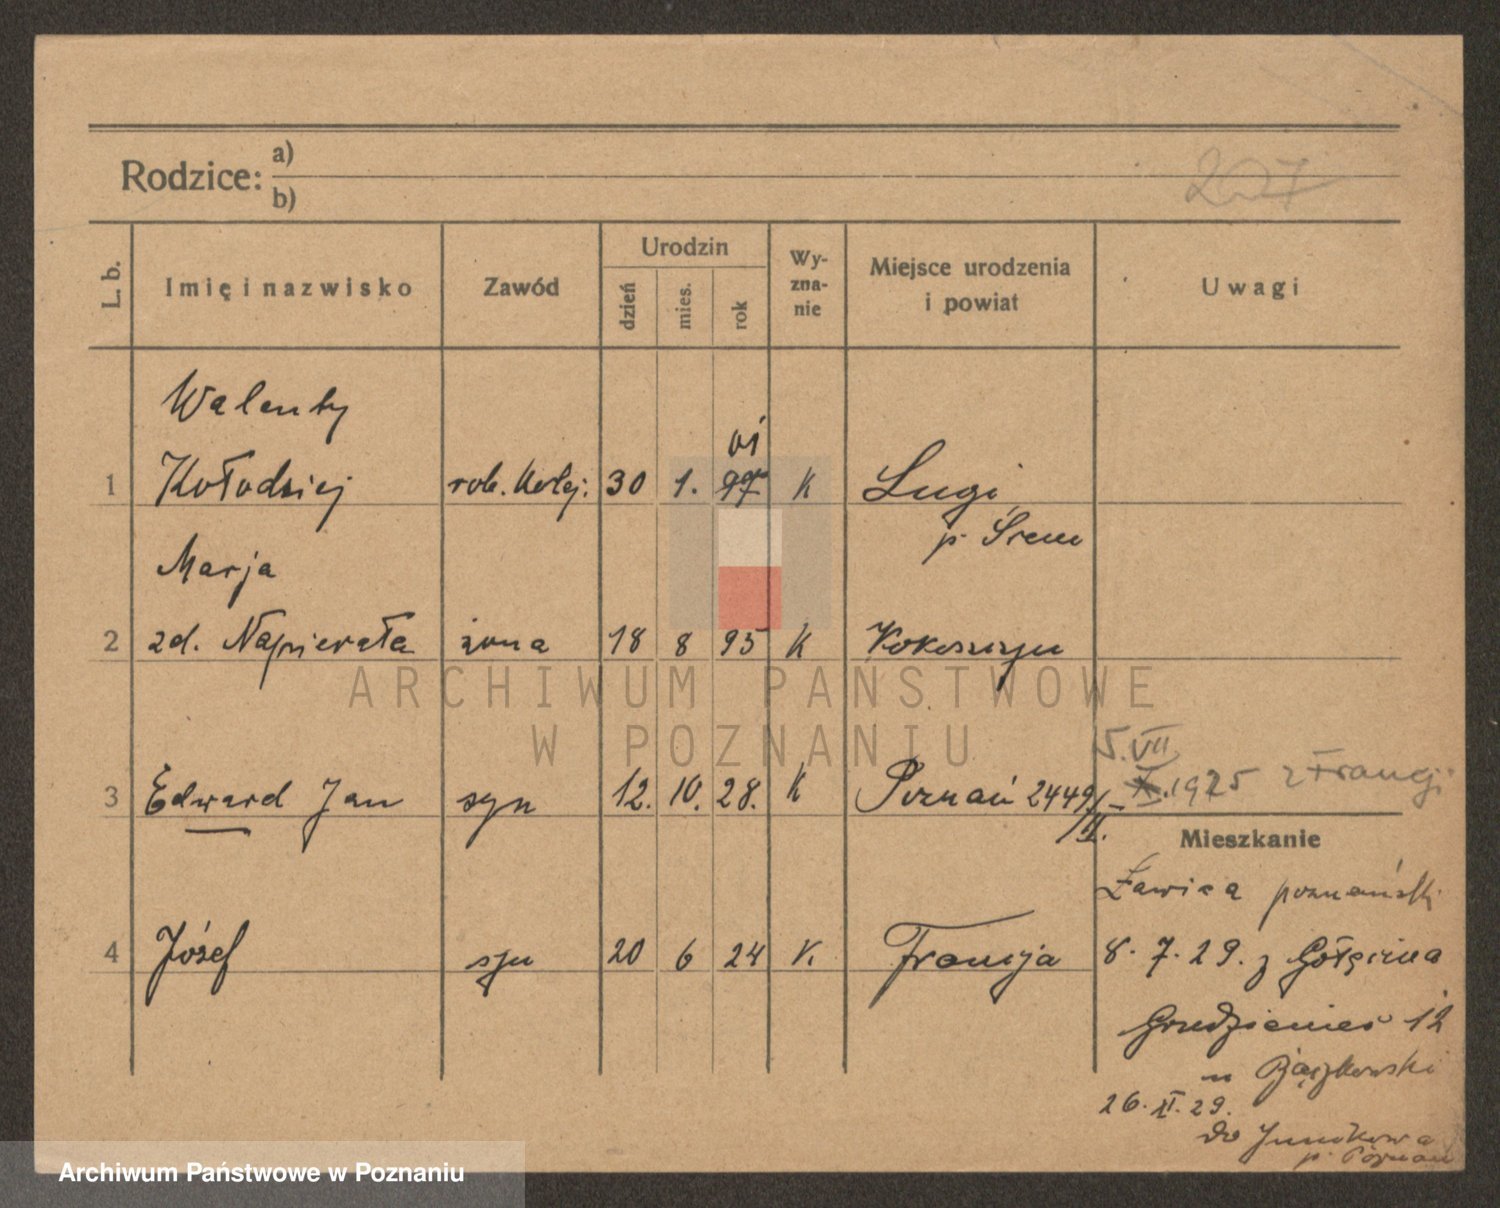 Rodzice: a)
b)
207
L. b. Imię i nazwisko Zawód Urodzin dzień mies. rok Wy-zna-nie Miejsce urodzenia i powiat Uwagi
Walenty
01
1 Kołodziej rob. kolej. 30 1. 97 K Ługi
p. Śrem
Marja
2 zd. Napierała żona 18 8 95 K Kokoszyn
5. VII
3 Edward Jan syn 12. 10. 28. K Poznań 2449/II. X.1925 z Francji
Mieszkanie
Ławica poznański
4 Józef syn 20 6 24 K. Francja 8. 7. 29. z Gołęcina
Grudzieniec 12
u Bączkowski
26. XI. 29.
do Junikowa
p. Poznań
ARCHIWUM PAŃSTWOWE
W POZNANIU
Archiwum Państwowe w Poznaniu